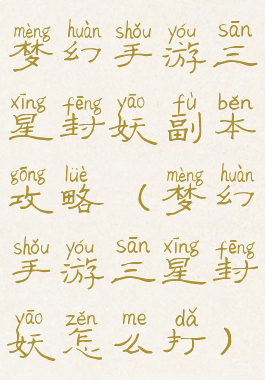 mèng huàn shǒu yóu sān
梦幻手游三
xīng fēng yāo fù běn
星封妖副本
gōng lüè mèng huàn
攻略（梦幻
shǒu yóu sān xīng fēng
手游三星封
yāo zěn me dǎ
妖怎么打）